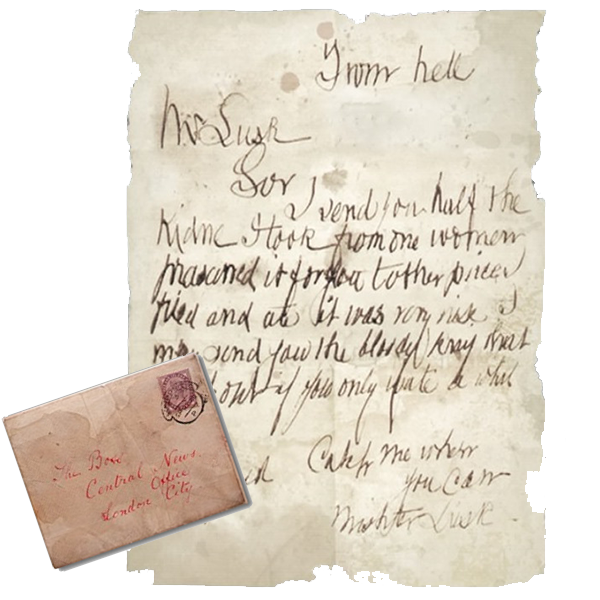 From hell
Mr Lusk
Sor
I send you half the
Kidne I took from one women
prasarved it for you tother piece I
fried and ate it was very nise I
may send you the bloody knif that
out if you only wate a whil
Catch me when
you Can
Mishter Lusk
The Boss
Central News
Office
London City